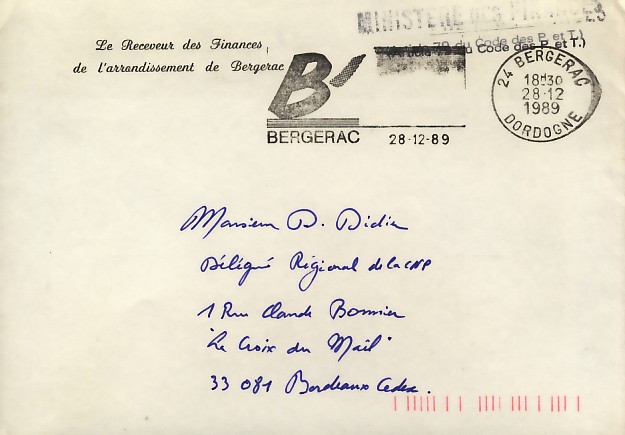 MINISTERE DES FINANCES
(Article 79 du Code des P. et T.)
Le Receveur des Finances
de l'arrondissement de Bergerac
B
BERGERAC 28-12-89
24 BERGERAC
18H30
28-12
1989
DORDOGNE
Monsieur D. Didier
Délégué Régional de la CNP
1 Rue Claude Bonnier
"Le Croix du Mail"
33 081 Bordeaux Cedex.